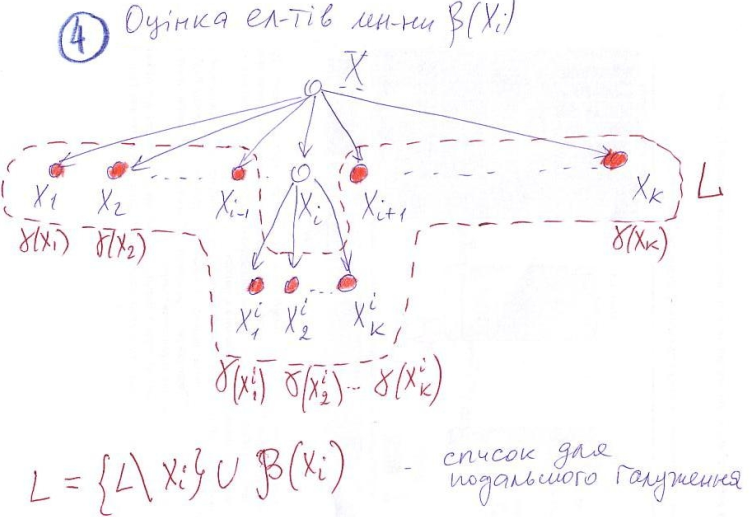 ④ Оцінка ел-тів мн-ни β(Xᵢ)
X
X₁ X₂ Xᵢ₋₁ Xᵢ Xᵢ₊₁ Xₖ L
γ(X₁) γ(X₂) γ(Xₖ)
X₁ⁱ X₂ⁱ Xₖⁱ
γ(X₁ⁱ) γ(X₂ⁱ) ... γ(Xₖⁱ)
L = {L \ Xᵢ} ∪ β(Xᵢ) - список для
подальшого галуження